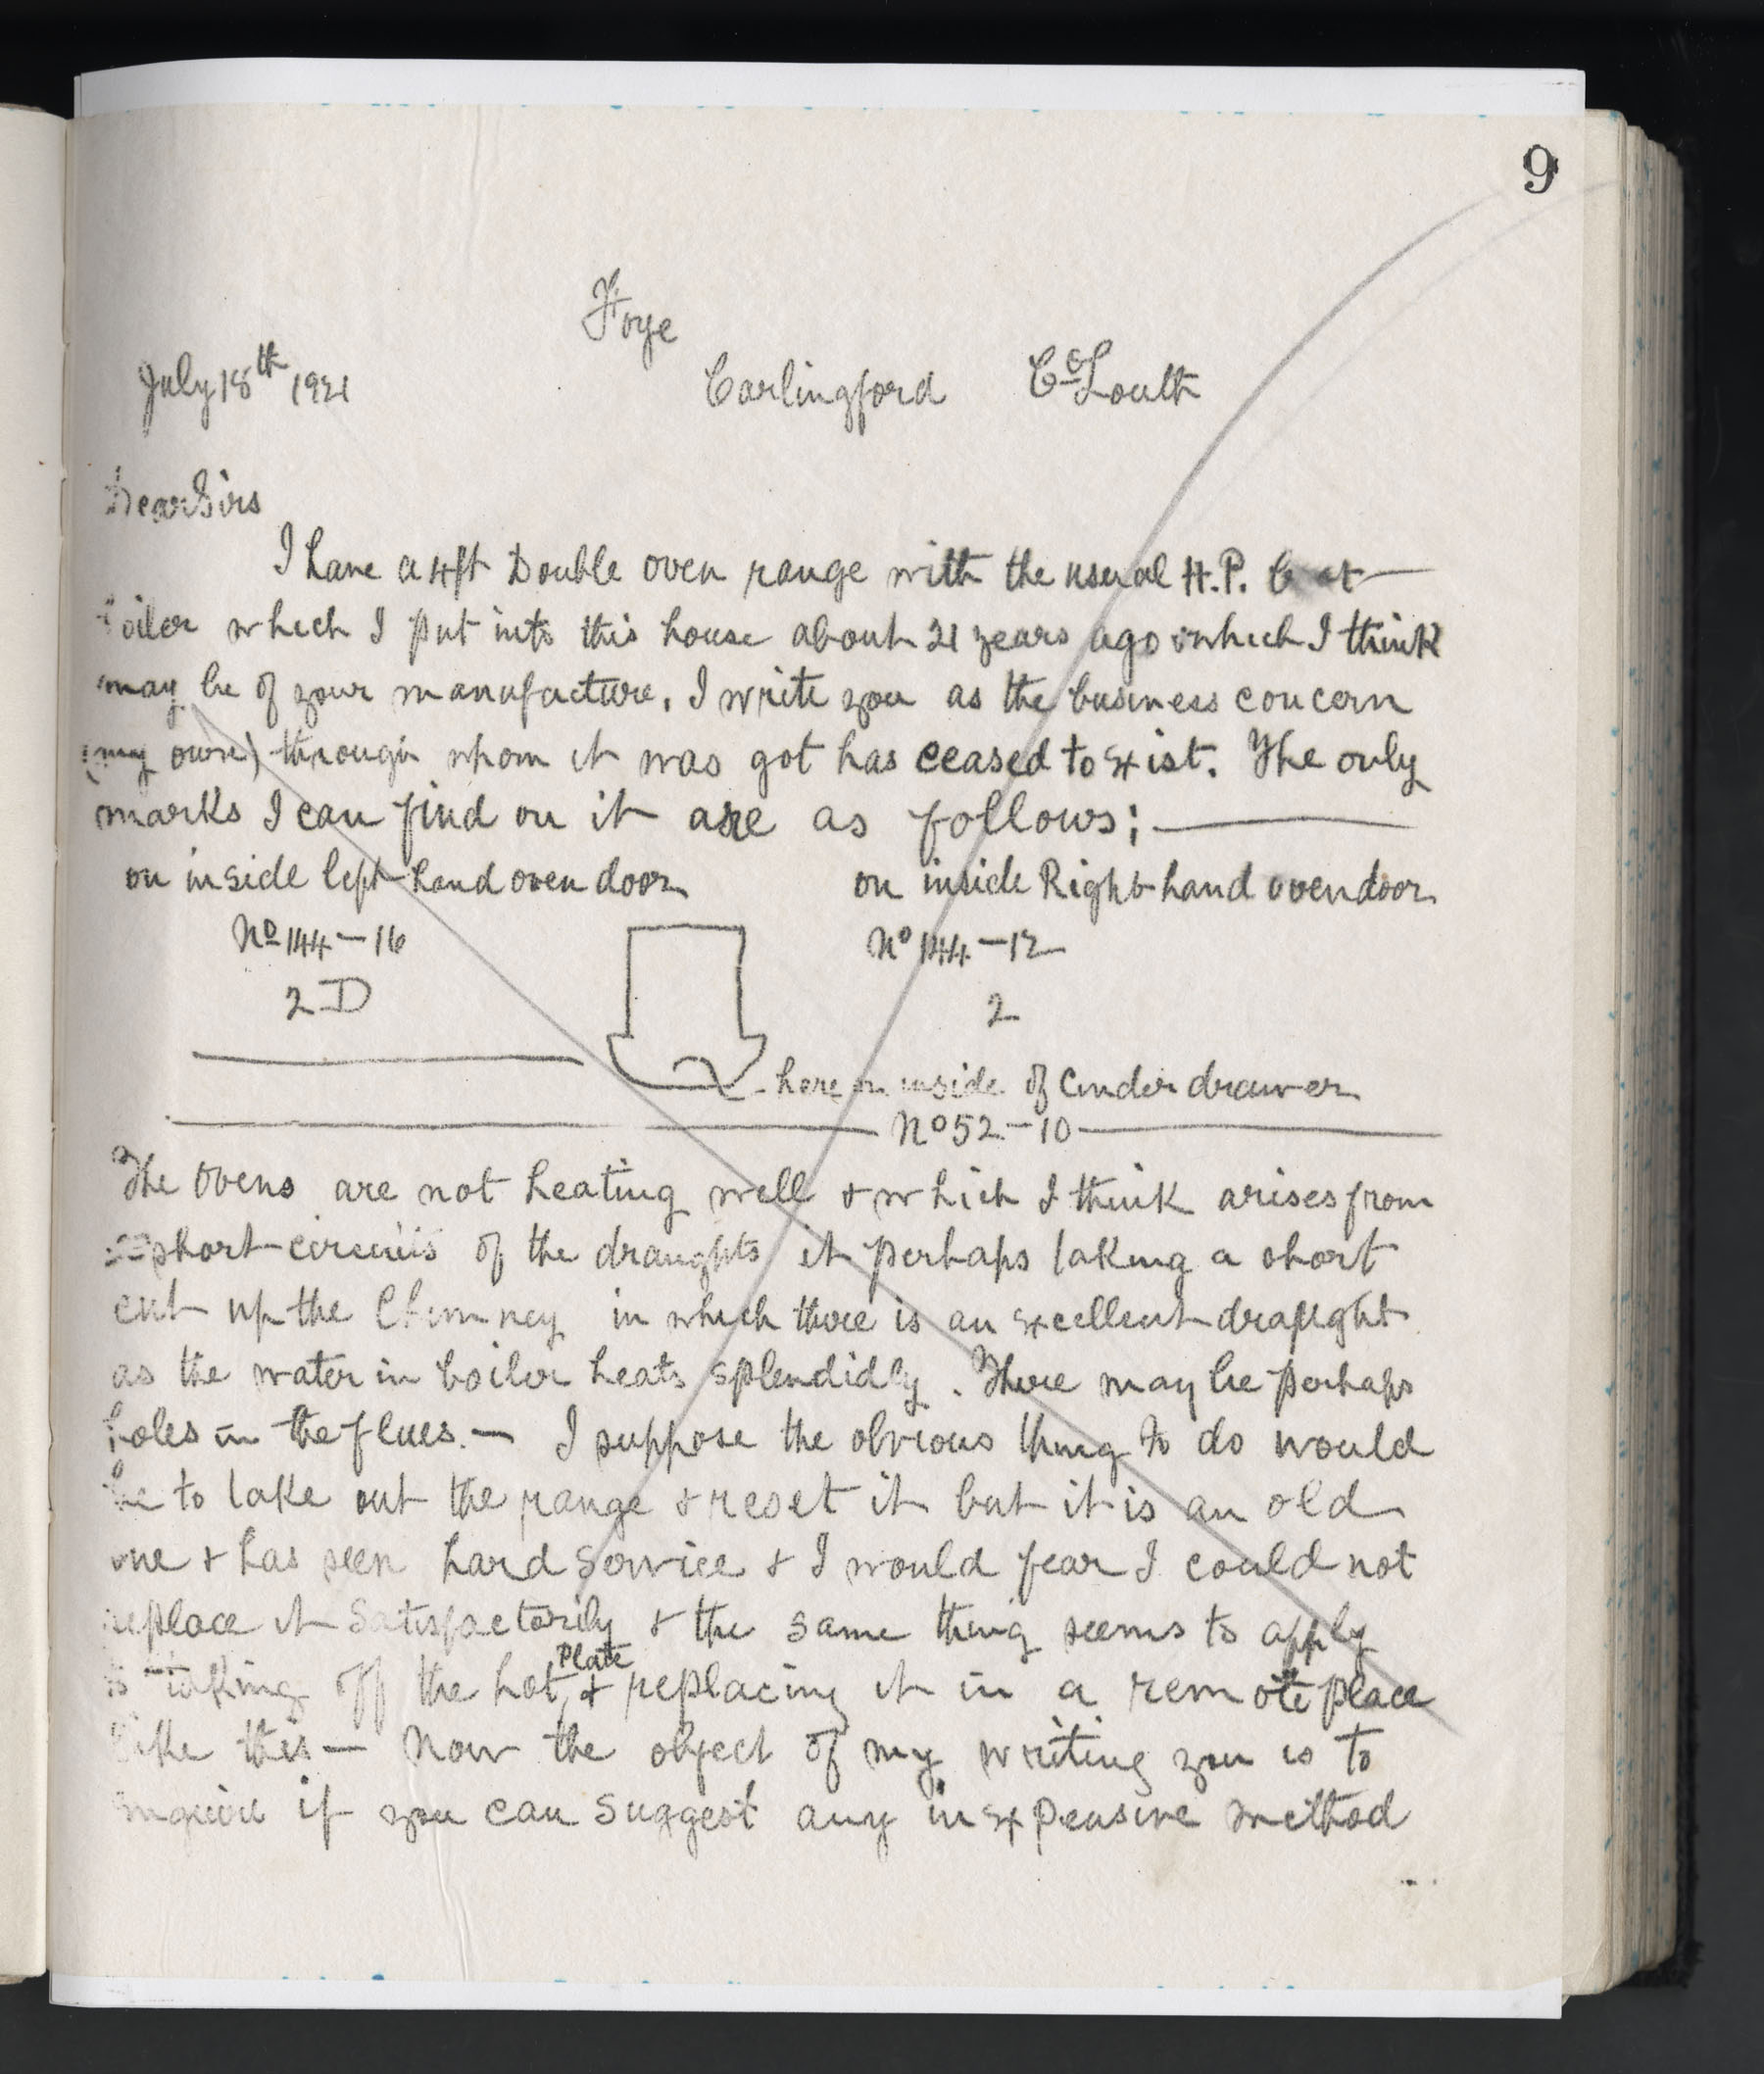 9
Foye
July 18th 1921 Carlingford Co Louth
Dear Sirs
I have a 4ft Double oven range with the usual H.P.
boiler which I put into this house about 21 years ago & which I think
may be of your manufacture. I write you as the business concern
(my own) through whom it was got has ceased to exist. The only
marks I can find on it are as follows; —
on inside left hand oven door on inside Right hand oven door
No 144-16 No 144-12
2D 2
here on inside of Cinder drawer
No 52-10
The Ovens are not heating well & which I think arises from
short-circuits of the draughts it perhaps taking a short
cut up the Chimney in which there is an excellent draught
as the water in boiler heats splendidly. There may be perhaps
holes in the flues. — I suppose the obvious thing to do would
be to take out the range & reset it but it is an old
one & has seen hard service & I would fear I could not
replace it satisfactorily & the same thing seems to apply
to taking off the hot Plate & replacing it in a remote place
like this — Now the object of my writing you is to
inquire if you can suggest any inexpensive method